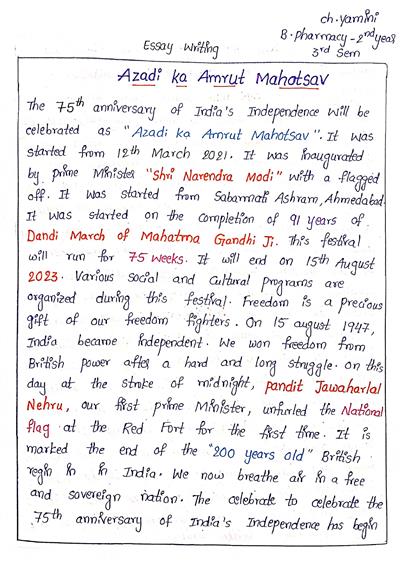 ch.yamini
B.pharmacy-2nd year
3rd Sem
Essay Writing
Azadi ka Amrut Mahotsav
The 75th anniversary of India's Independence will be
celebrated as "Azadi ka Amrut Mahotsav". It was
started from 12th March 2021. It was inaugurated
by prime Minister "Shri Narendra Modi" with a flagged
off. It was started from Sabarmati Ashram, Ahmedabad.
It was started on the completion of 91 years of
Dandi March of Mahatma Gandhi Ji. This festival
will run for 75 weeks. It will end on 15th August
2023. Various social and cultural programs are
organized during this festival. Freedom is a precious
gift of our freedom fighters. On 15 august 1947,
India became independent. We won freedom from
British power after a hard and long struggle. On this
day at the stroke of midnight, pandit Jawaharlal
Nehru, our first prime Minister, unfurled the National
flag at the Red Fort for the first time. It is
marked the end of the "200 years old" British
regin in in India. We now breathe air in a free
and sovereign nation. The celebrate to celebrate the
75th anniversary of India's Independence has begin